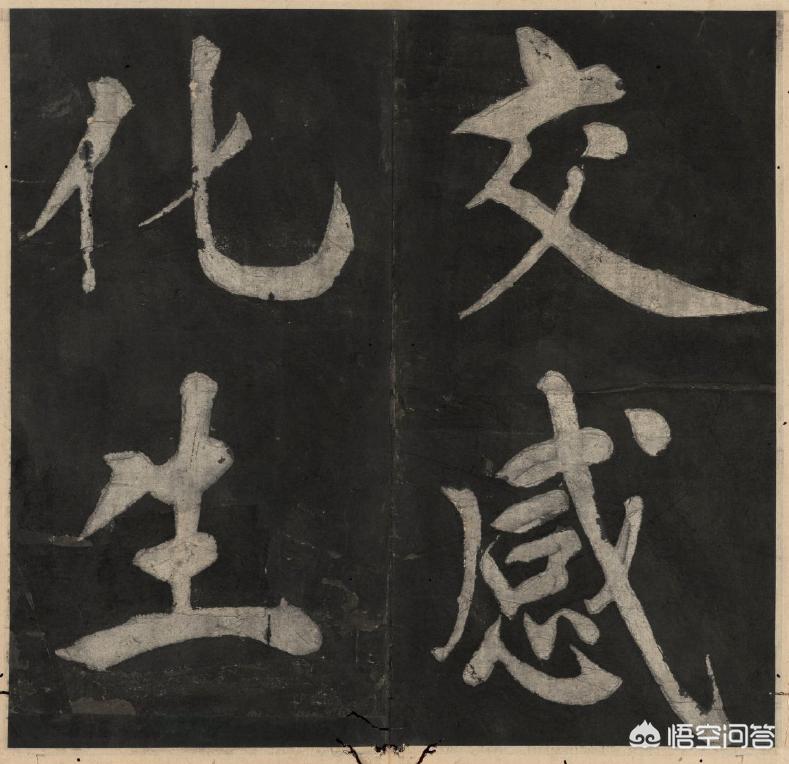 交感
化生
悟空问答